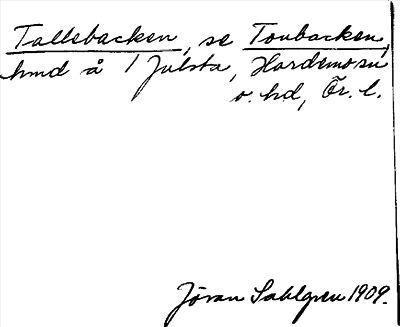 Tallebacken, se Toubacken,
hmd å 1 Julsta, Hardemo sn
o. hd, Ör. l.
Jöran Sahlgren 1909.